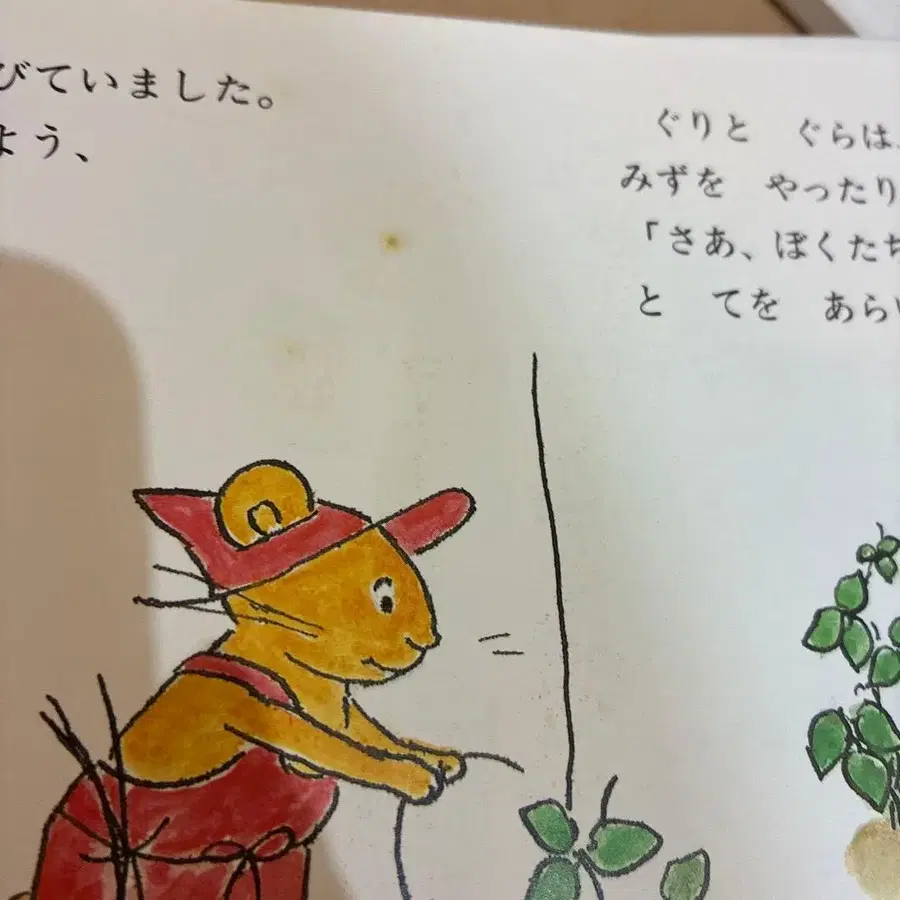 びていました。
よう、
ぐりと　ぐらは、
みずを　やったり
「さあ、ぼくたち
と　てを　あらい